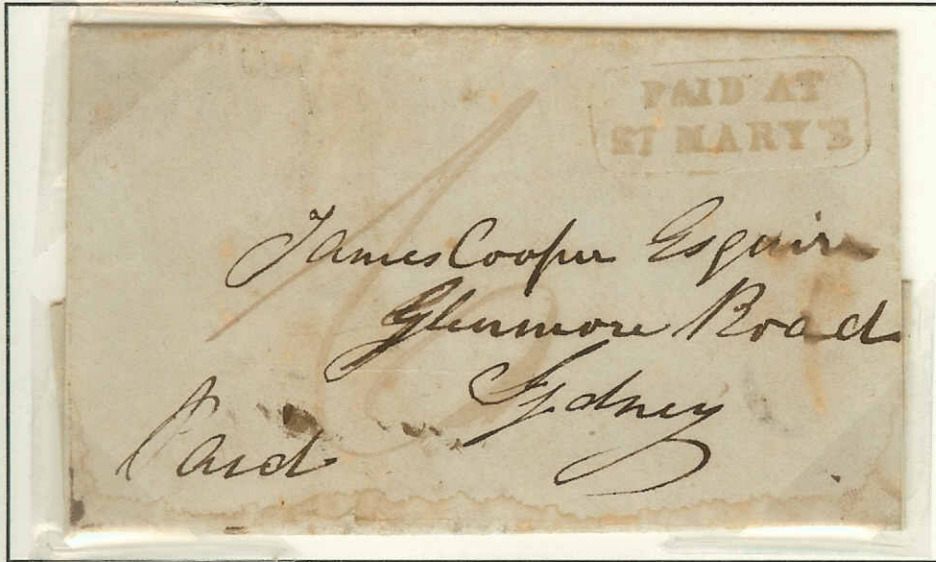 PAID AT
ST MARY'S
James Cooper Esquire
Glenmore Road
Sydney
Paid